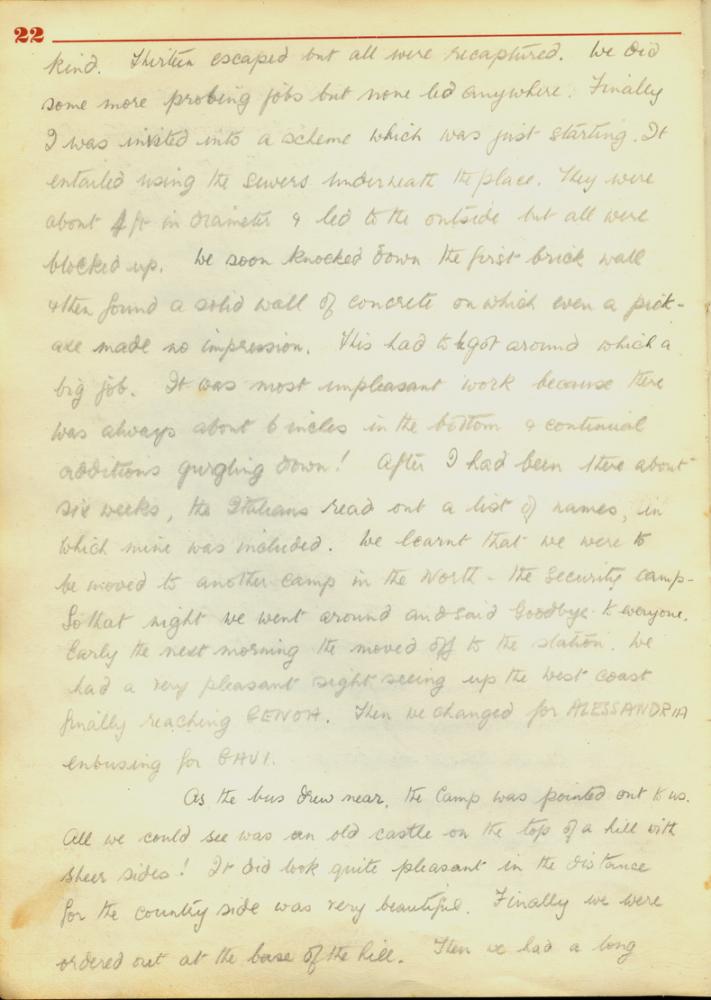 22
kind. Thirteen escaped but all were recaptured. We did
some more probing jobs but none led anywhere. Finally
I was invited into a scheme which was just starting. It
entailed using the sewers underneath the place. They were
about 4 ft in diameter & led to the outside but all were
blocked up. We soon knocked down the first brick wall
& then found a solid wall of concrete on which even a pick-
axe made no impression. This had to be got around which a
big job. It was most unpleasant work because there
was always about 6 inches in the bottom & continual
additions gurgling down! After I had been there about
six weeks, the Italians read out a list of names, in
which mine was included. We learnt that we were to
be moved to another camp in the North - the Security camp-
So that night we went around and said Goodbye to everyone.
Early the next morning the moved off to the station. We
had a very pleasant sight seeing up the west coast
finally reaching GENOA. Then we changed for ALESSANDRIA
enbusing for GAVI.
As the bus drew near, the Camp was pointed out to us.
All we could see was an old castle on the top of a hill with
sheer sides! It did look quite pleasant in the distance
for the country side was very beautiful. Finally we were
ordered out at the base of the hill. Then we had a long